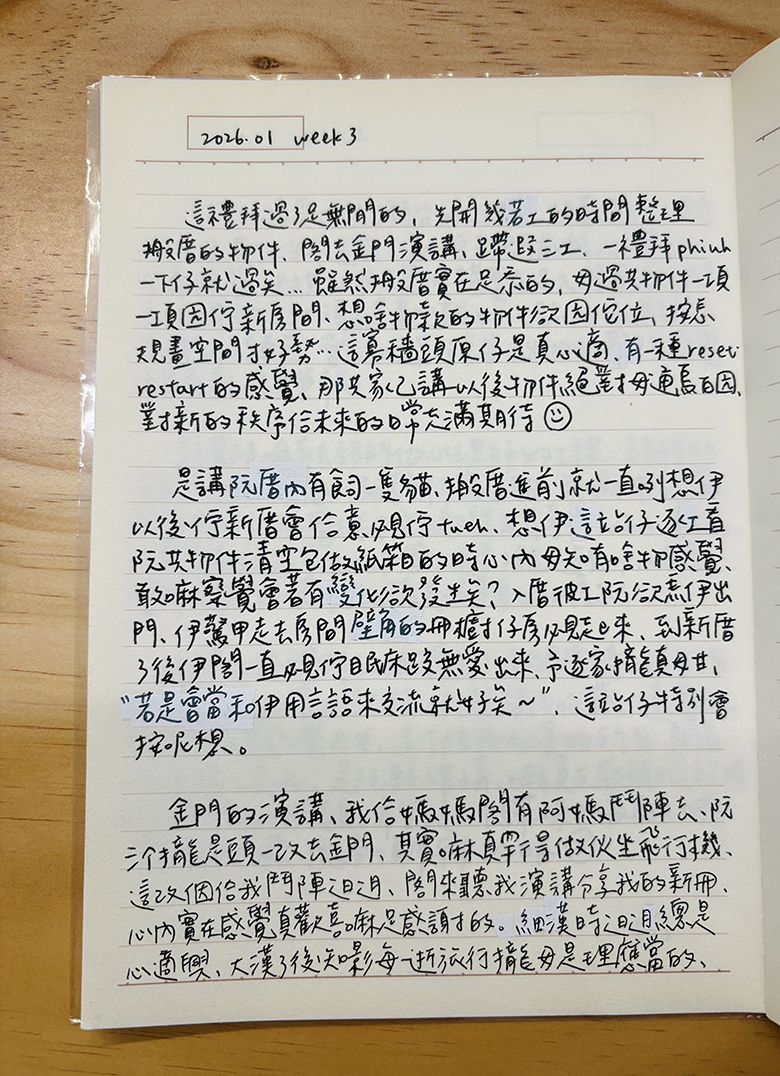 2026.01 week 3
這禮拜過了足無閒的，先開幾若工的時間整理
搬厝的物件、閣去金門演講、踮遐三工，一禮拜phiuh
一下仔就過矣…雖然搬厝實在足忝的，毋過共物件一項
一項囥佇新房間、想啥物款的物件欲囥佗位、按怎
規畫空間才好勢…這寡穡頭原仔是真心適、有一種reset
restart的感覺、那共家己講以後物件絕對毋通烏白囥、
對新的秩序佮未來的日常充滿期待☺
是講阮厝內有飼一隻貓、搬厝進前就一直咧想伊
以後佇新厝會佮意覕佇tueh、想伊這站仔逐工看
阮共物件清空包做紙箱的時心內毋知有啥物感覺、
敢嘛察覺會著有變化欲發生矣？入厝彼工阮欲焉伊出
門、伊驚甲走去房間壁角的冊櫥仔房覕起來、到新厝
了後伊閣一直覕佇眠床跤無愛出來、予逐家攏真毋甘、
“若是會當和伊用言語來交流就好矣～”，這站仔特別會
按呢想。
金門的演講、我佮媽媽閣有阿媽鬥陣去、阮
三个攏是頭一改去金門、其實嘛真罕得做伙坐飛行機、
這改因佮我鬥陣𨑨迌、閣來聽我演講分享我的新冊、
心內實在感覺真歡喜嘛足感謝的。細漢時𨑨迌總是
心適興、大漢了後知影每一逝旅行攏毋是理應當的、